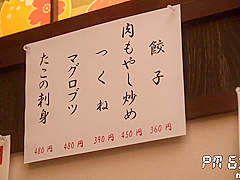 餃子 360円
肉もやし炒め 450円
つくね 390円
マグロブツ 480円
たこの刺身 480円
PM 5